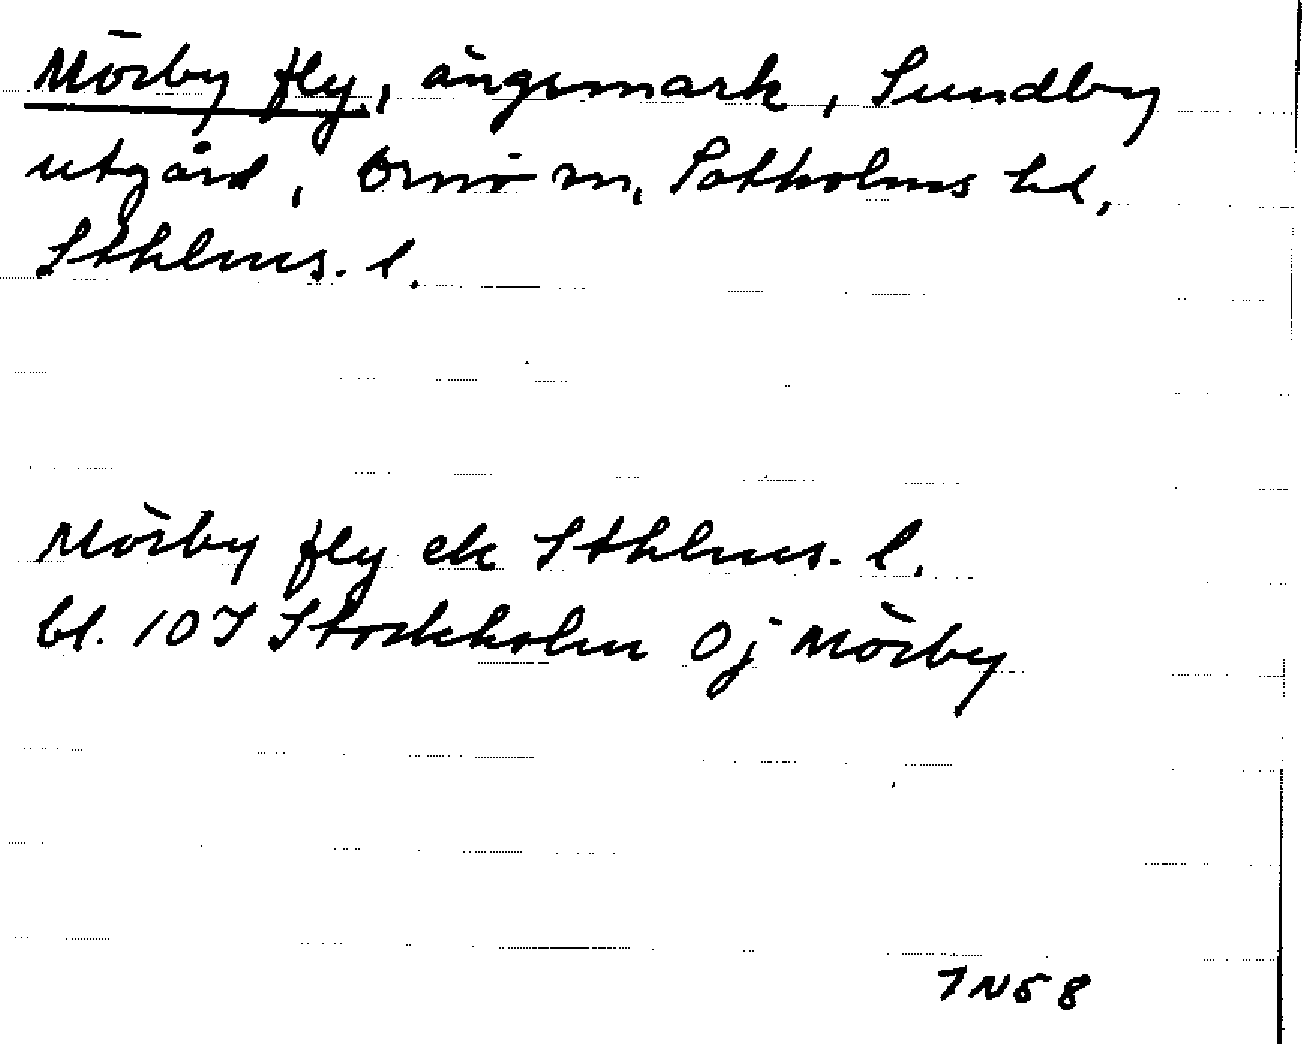 Mörby fly, ängsmark, Sundby
utgård, Ornö sn, Sotholms hd,
Sthlms. l.
Mörby fly ek Sthlms. l.
bl. 10I Stockholm 0j Mörby
IN58